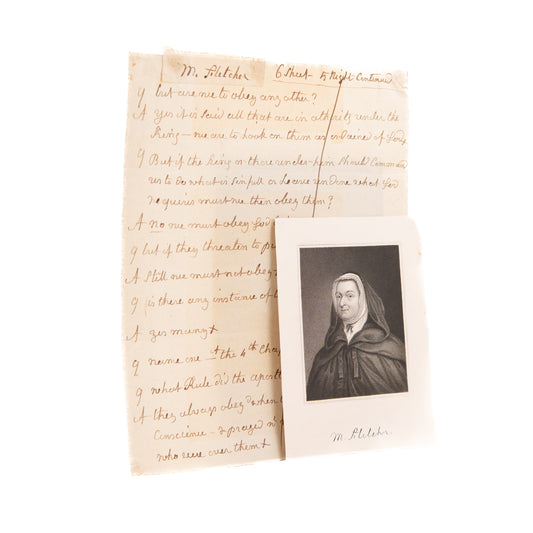 M. Fletcher 6 Sheet 5 Right Continued
q but are we to obey any other?
A yes it is said all that are in athority under the
King – we are to look on them as ordained of Lord
q But if the King or those under him should Command
us to do what is sinfull or leave undone what God
requires must we then obey them?
A no we must obey God
q but if they threaten to
A Still we must not obey
q is there any instance of
A yes many +
q name one 1st the 4th Chap
q what Rule did the apost
A they always obey'd when
Conscience – & prayed
who were over them +
M. Fletcher